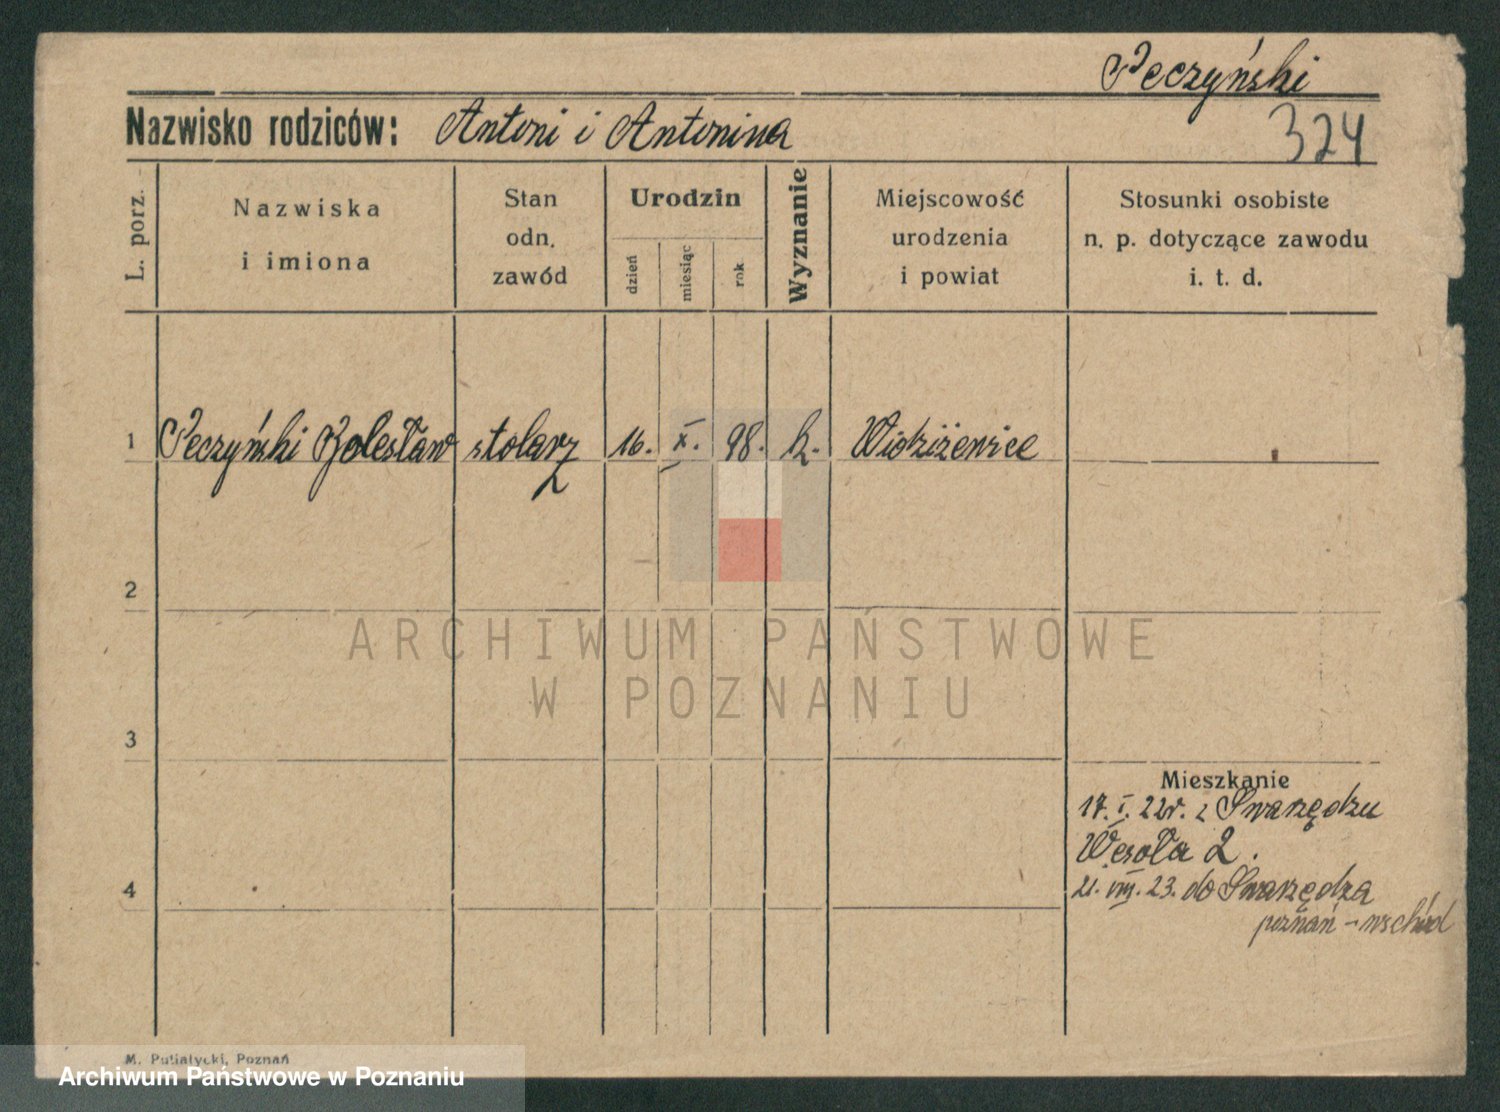 Peczyński
Nazwisko rodziców: Antoni i Antonina
324
L. porz.
Nazwiska
i imiona
Stan
odn.
zawód
Urodzin
dzień
miesiąc
rok
Wyznanie
Miejscowość
urodzenia
i powiat
Stosunki osobiste
n. p. dotyczące zawodu
i. t. d.
1 Peczyński Bolesław stolarz 16. X. 98. k.
2
3
4
Mieszkanie
17. I. 22r. z Swarzędzu
Wesoła 2.
21. VIII. 23. do Swarzędza
poznań - wschód
ARCHIWUM PAŃSTWOWE
W POZNANIU
M. Putiatycki, Poznań
Archiwum Państwowe w Poznaniu